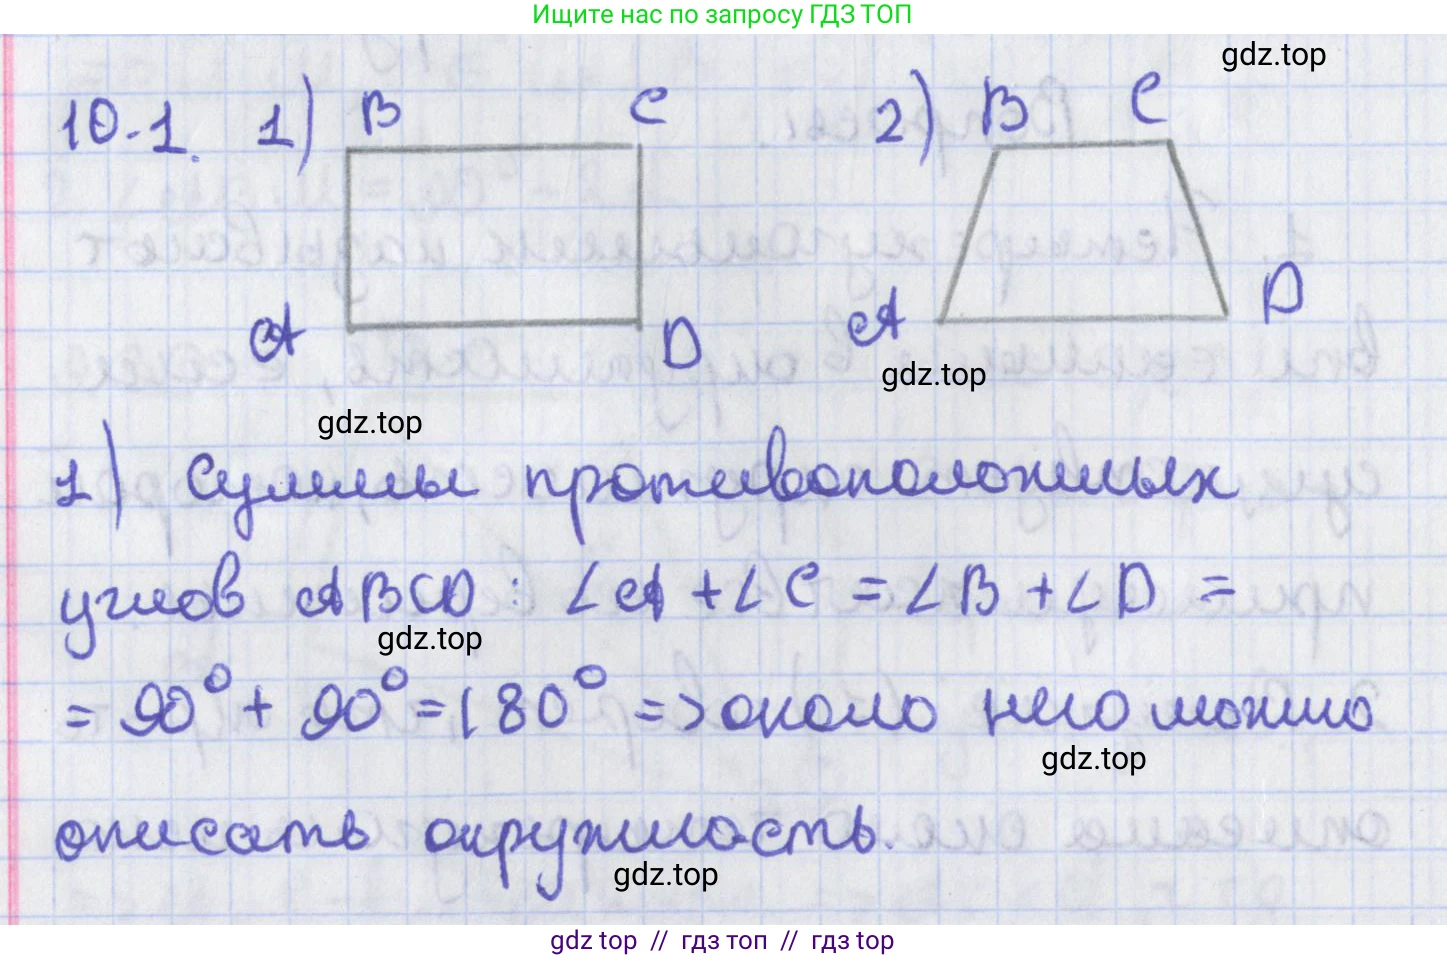 Ищите нас по запросу ГДЗ ТОП
gdz.top
10.1. 1) B C 2) B C
A D A D
gdz.top
gdz.top
1) Суммы противоположных
углов ABCD: ∠A + ∠C = ∠B + ∠D =
gdz.top
= 90° + 90° = 180° => около него можно
gdz.top
описать окружность.
gdz.top
gdz top // гдз топ // гдз top